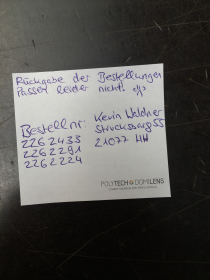 Rückgabe der Bestellungen
Passen leider nicht.
Bestellnr.
2262433
2262291
2262224
Kevin Waldner
Strucksbarg 55
21077 HH
POLYTECH DOMILENS